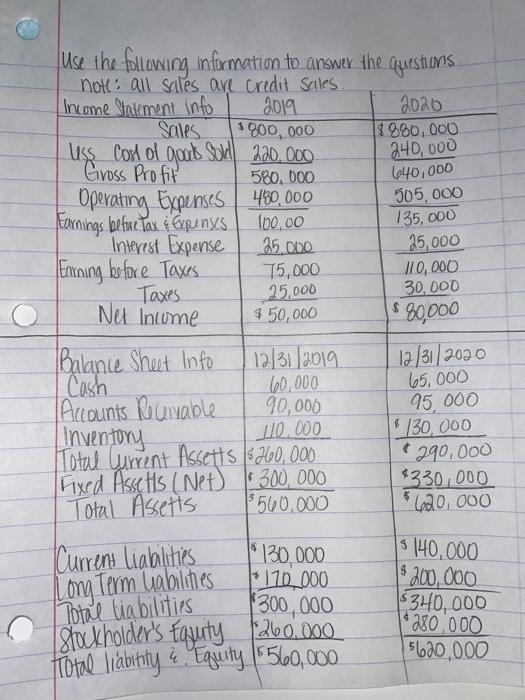 Use the following information to answer the questions.
note: all sales are credit sales.
Income Statement info 2019 2020
Sales $800,000 $880,000
Less Cost of goods Sold 220,000 240,000
Gross Profit 580,000 640,000
Operating Expenses 480,000 505,000
Earnings before Tax & Expenses 100,00 135,000
Interest Expense 25,000 25,000
Earning before Taxes 75,000 110,000
Taxes 25,000 30,000
Net Income $50,000 $80,000
Balance Sheet Info 12/31/2019 12/31/2020
Cash 60,000 65,000
Accounts Receivable 90,000 95,000
Inventory 110,000 $130,000
Total Current Assetts $260,000 $290,000
Fixed Assetts (Net) $300,000 $330,000
Total Assetts $560,000 $620,000
Current liabilities $130,000 $140,000
Long Term liabilities $170,000 $200,000
Total liabilities $300,000 $340,000
Stockholder's Equity $260,000 $280,000
Total liability & Equity $560,000 $620,000